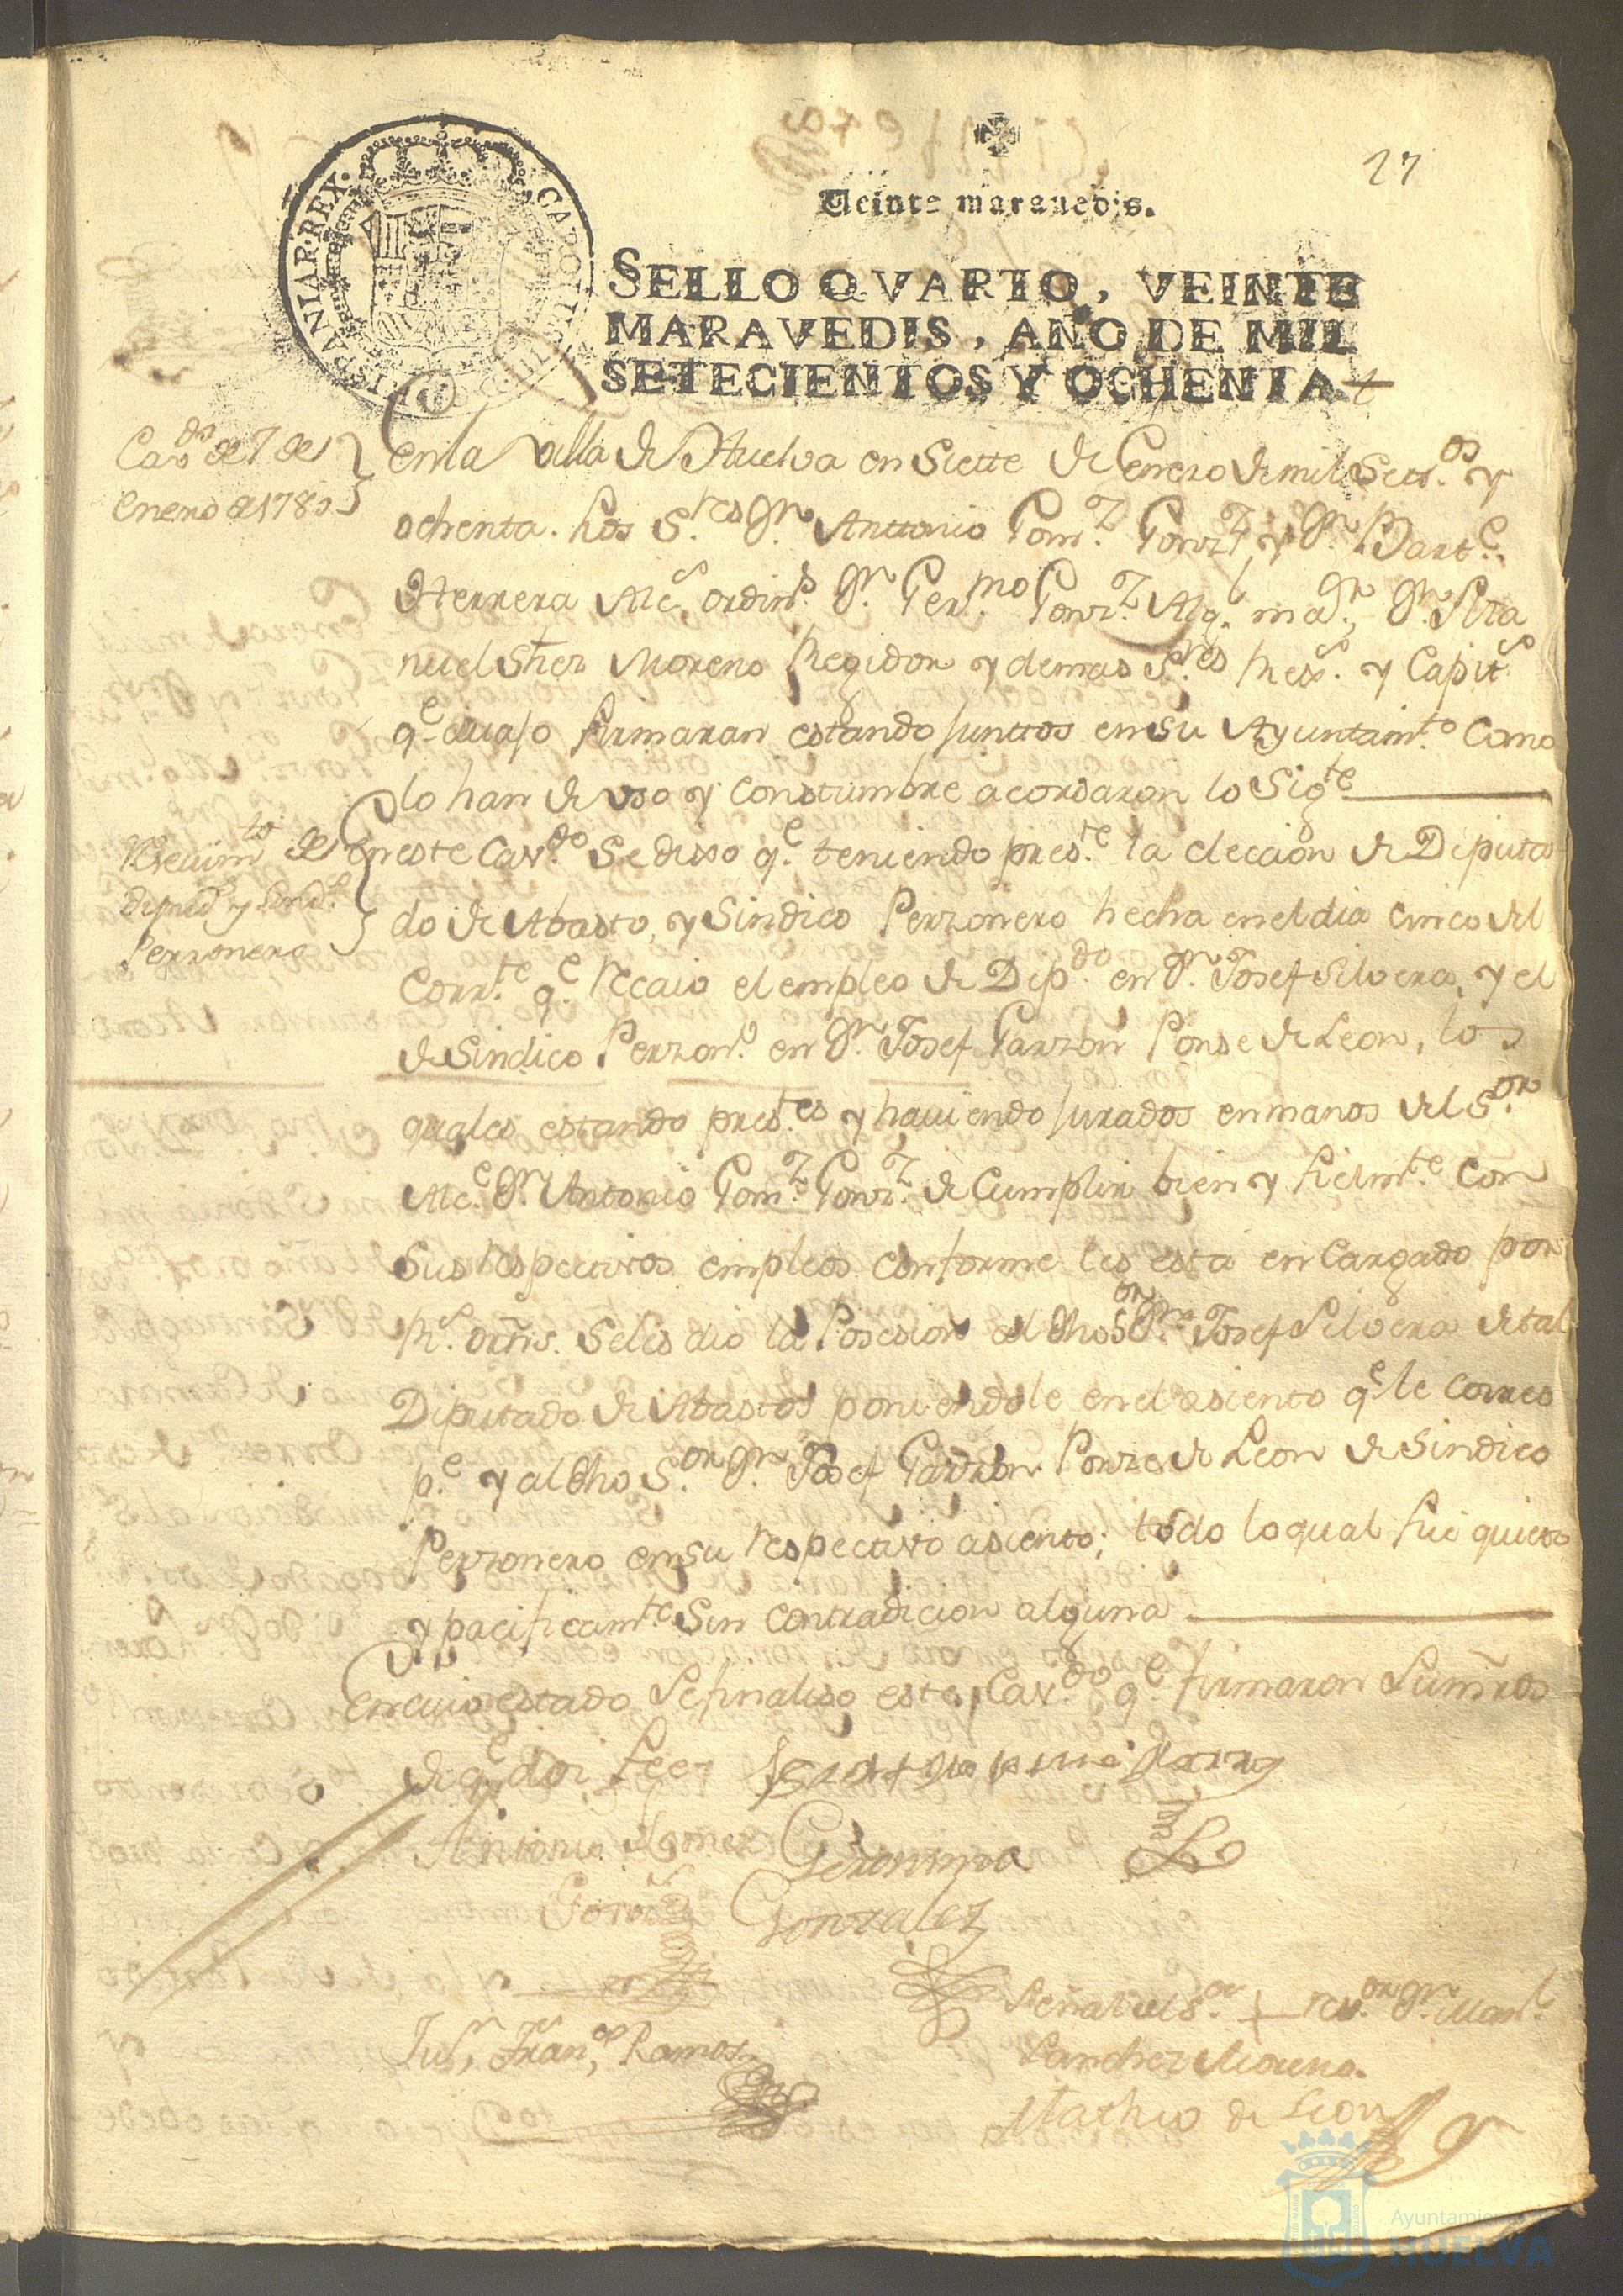 27
Veinte maravedis.
CAROLUS III D G HISPANIAR REX
SELLO QVARTO, VEINTE
MARAVEDIS, AÑO DE MIL
SETECIENTOS Y OCHENTA
Cavdo de 7 de
Enero de 1780
En la Villa de Huelva en Siette de Enero de mil Setts.os y
ochenta. Los S.res Dn. Anttonio Gom.z Gonz.z y Dn. Bart.e
Herrera Alc.s ordin.s Dn. Ger.mo Gonz.z Alg.l ma.r, Dn. Ma
nuel Shez Moreno Regidor y demas S.res Rex.s y Capit.s
q.e avajo firmaran estando junttos en su Ayuntam.to Como
lo han de uso y Constumbre acordaron lo Sig.te
Reciuim.to de
diputd.o y Sind.o
Perzonero
En este Cav.do Se dixo q.e teniendo pres.te la eleccion de Diputa
do de Abasto, y Sindico Perzonero hecha en el dia cinco del
Corr.te q.e recaio el empleo de Dip.do en Dn. Josef Silvera, y el
de Sindico Perzon.o en Dn. Josef Garzon Ponse de Leon, los
quales estando pres.tes y haviendo jurados en manos del S.or
Alc.e Dn. Antonio Gom.z Gonz.z de Cumplir bien y fielm.te Con
Sus respectivos empleos conforme les esta en Cargado por
R.s orñs. Se les dio la Posesion al dho S.or Dn. Josef Silvera de tal
Diputado de Abastos poniendole en el asiento q.e le Corres
p.e y al dho S.or Dn. Josef Garzon Ponze de Leon de Sindico
Perzonero en su respectivo asiento; todo lo qual fue quieto
y pacificam.te Sin Contradicion alguna
En cuio estado Se finaliso este Cav.do q.e firmaron Sus mrds
de q.e doi fee
Antonio Gomez
Gonz.z
Geronimo
Gonzalez
Señal del S.or + rex.or Dn. Man.l
Sanchez Moreno.
Ju.n Fran.co Ramos
Mathio de Leon
Ayuntamiento de
HUELVA